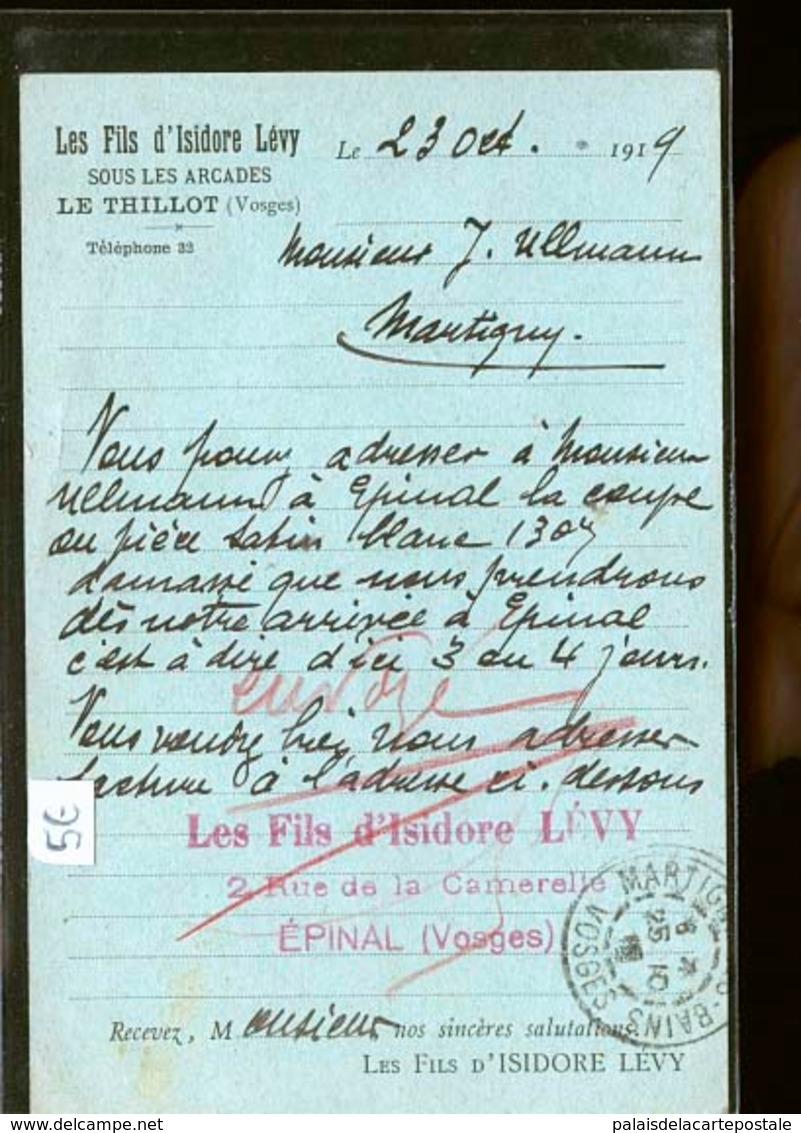 Les Fils d'Isidore Lévy
SOUS LES ARCADES
LE THILLOT (Vosges)
Téléphone 32
Le 23 Oct. 1919
Monsieur J. Ullmann
Martigny.
Vous pouvez adresser à Monsieur
Ullmann à Epinal la coupe
ou pièce satin blanc 1307
damassé que nous prendrons
dès notre arrivée à Epinal
c'est à dire d'ici 3 ou 4 jours.
envoyé
Vous voudrez bien nous adresser
facture à l'adresse ci-dessous
5€
Les Fils d'Isidore LÉVY
2, Rue de la Camerelle
ÉPINAL (Vosges)
MARTIGNY-BAINS
VOSGES
25 10
Recevez, Monsieur nos sincères salutations.
LES FILS D'ISIDORE LÉVY
www.delcampe.net
palaisdelacartepostale